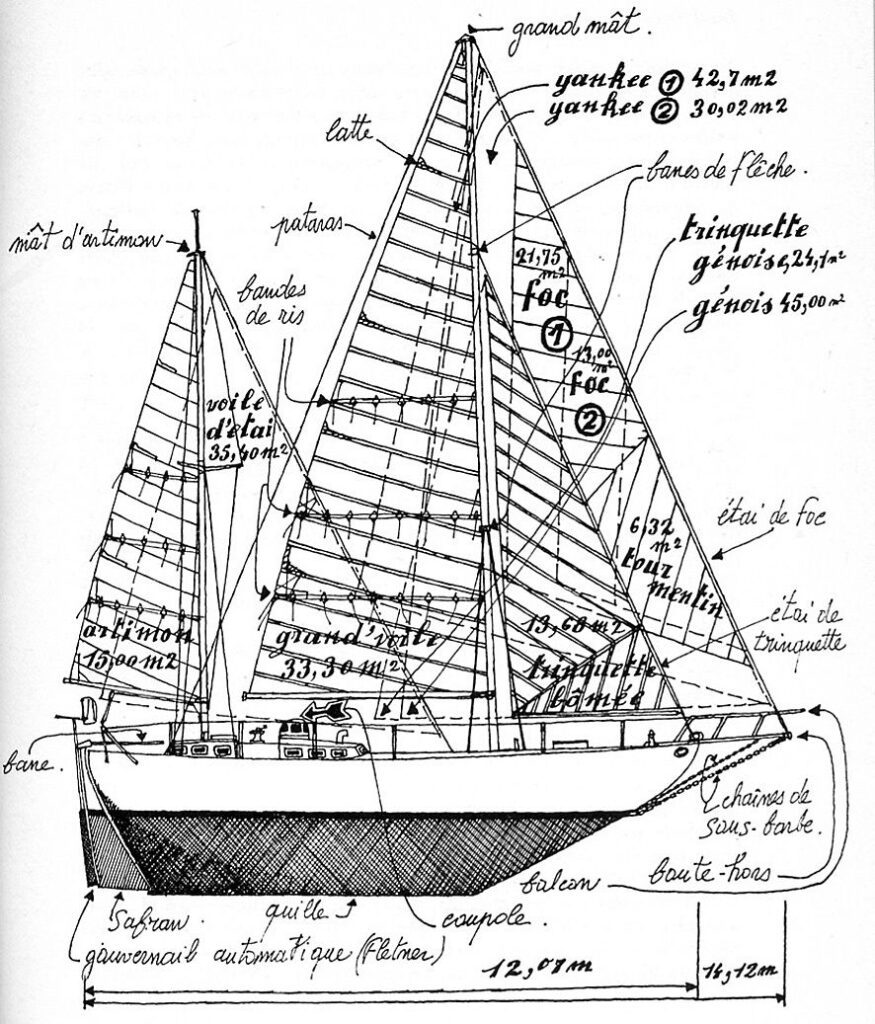 grand mât.
yankee ① 42,7m2
yankee ② 30,02m2
latte
banes de flêche.
pataras
mât d'artimon
trinquette
génoise, 24,1m²
génois 45,00m²
bandes
de ris
21,75
m²
foc
①
13,00
m²
foc
②
voile
d'étai
35,40m²
étai de foc
6,32
m²
tour
mentin
étai de
trinquette
artimon
15,00m2
grand'voile
33,30m²
13,68m²
trinquette
bômée
bane.
chaînes de
sous-barbe.
balcon
boute-hors
safran.
quille
coupole.
gouvernail automatique (Fletner)
12,07m
14,12m